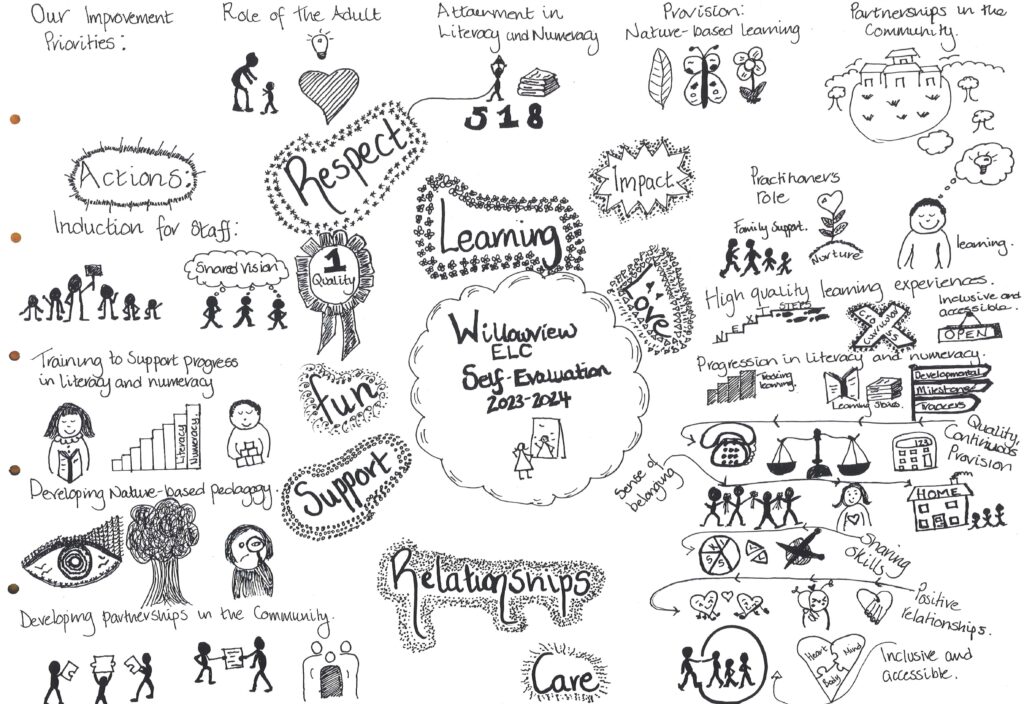 Our Improvement
Priorities:
Role of the Adult
Attainment in
Literacy and Numeracy
518
Provision:
Nature-based learning
Partnerships in the
Community.
Actions:
Respect
Learning
Impact
Love
Fun
Support
Relationships
Care
Willowview
ELC
Self-Evaluation
2023-2024
Induction for Staff:
Shared Vision
1
Quality
Training to Support progress
in literacy and numeracy
Literacy
Numeracy
Developing Nature-based pedagogy.
Developing partnerships in the Community.
Practitioner's
Role
Family Support.
Nurture
learning.
High quality learning experiences.
NEXT STEPS
Inclusive and
accessible.
OPEN
Progression in literacy and numeracy.
Tracking
learning.
Learning Stories
Developmental
Milestone
Trackers
Quality,
Continuous
Provision
123
Sense of
belonging
HOME
Sharing
Skills
Positive
relationships.
Heart
Mind
Body
Inclusive and
accessible.